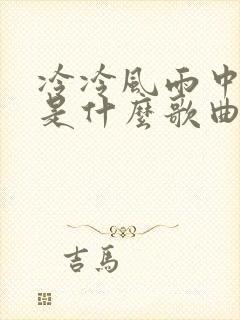 冷冷風雨中
是什麼歌曲
吉馬